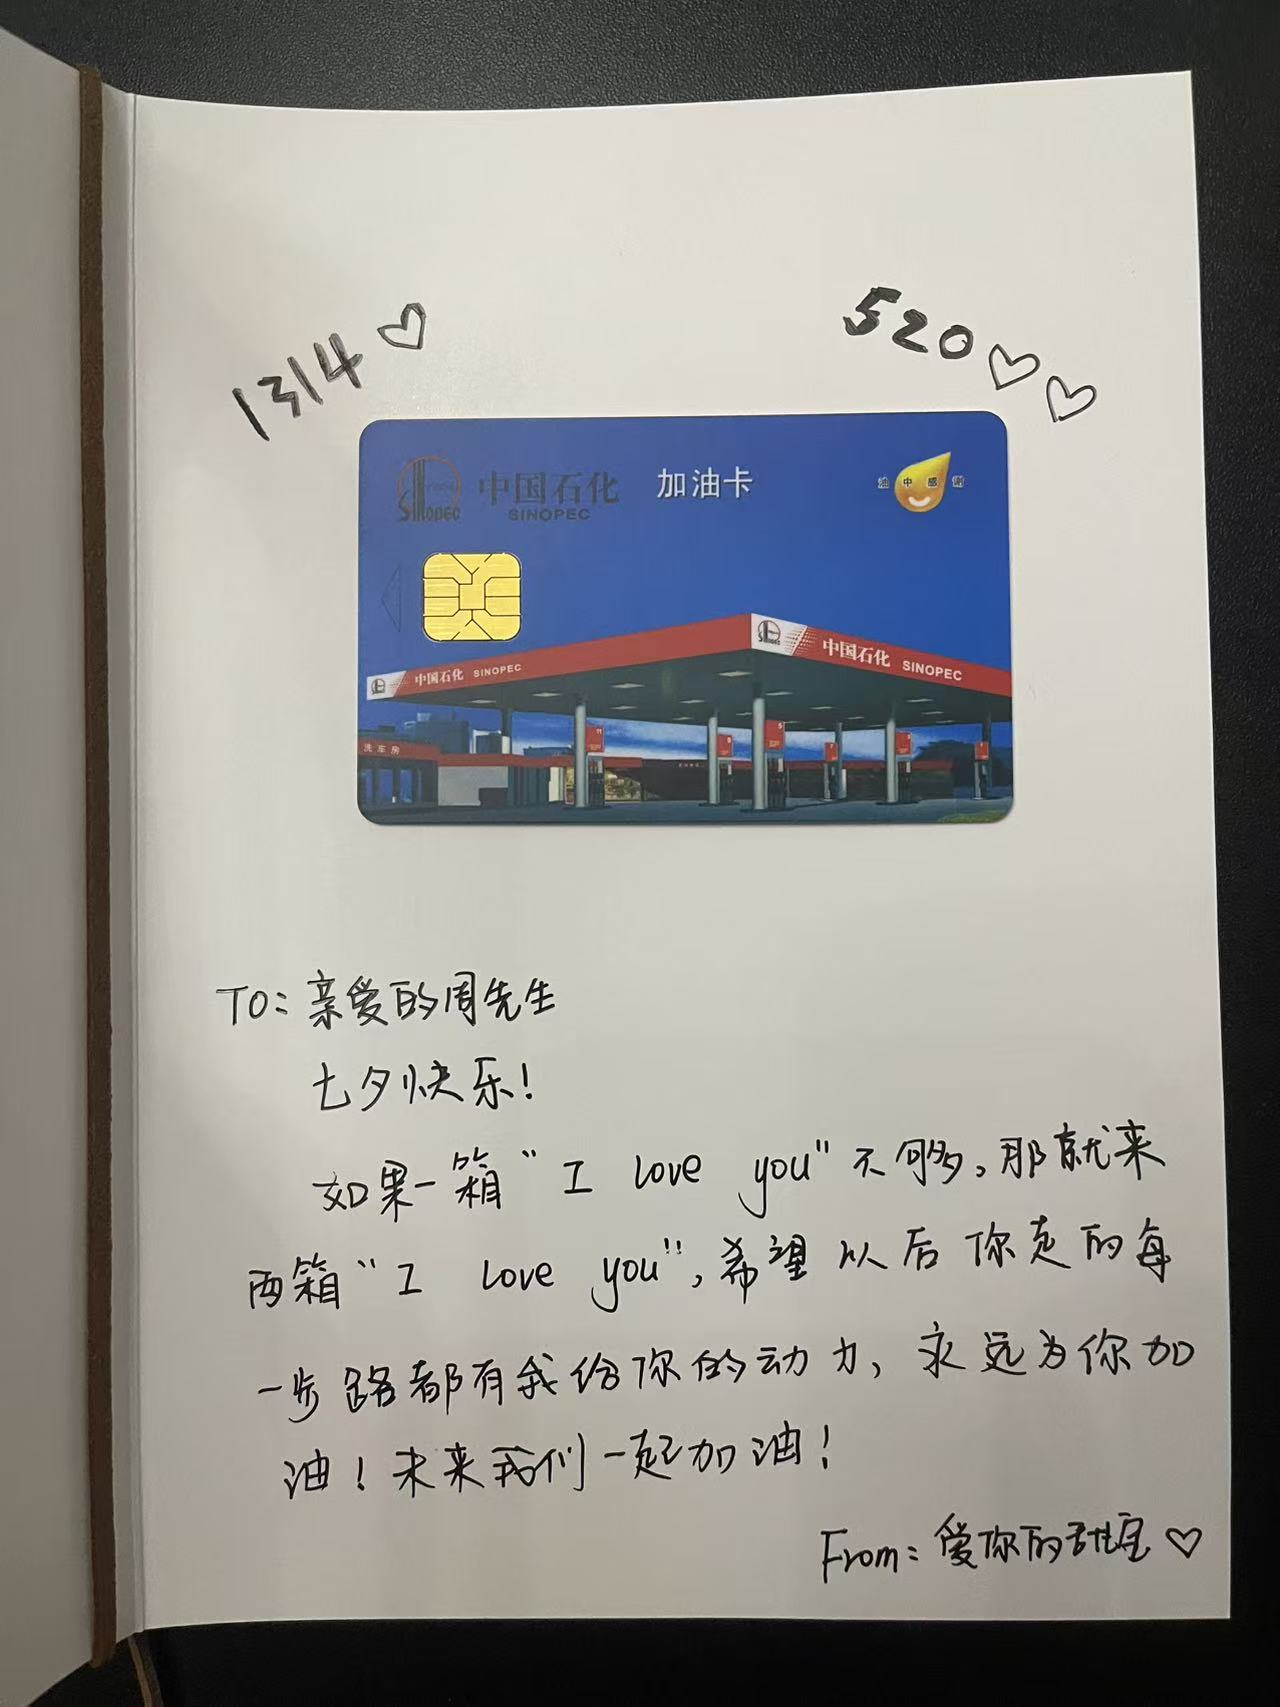 1314♡
520♡♡
SINOPEC
中国石化
SINOPEC
加油卡
油中感谢
中国石化 SINOPEC
中国石化 SINOPEC
洗车房
TO: 亲爱的周先生
七夕快乐!
如果一箱“I love you”不够,那就来
两箱“I love you”,希望以后你走的每
一步路都有我给你的动力,永远为你加
油!未来我们一起加油!
From: 爱你的甜宝♡